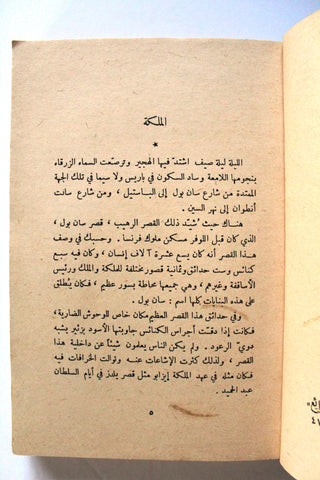 الملكة
*
الليلة ليلة صيف اشتدّ فيها الهجير وترصّعت السماء الزرقاء
بنجومها اللامعة وساد السكون في باريس ولا سيما في تلك الجهة
الممتدة من شارع سان بول إلى الباستيل ، ومن شارع سانت
أنطوان إلى نهر السين .
هناك حيث شُيّد ذلك القصر الرهيب ، قصر سان بول ،
الذي كان قبل اللوفر مسكن ملوك فرنسا . وحسبك في وصف
هذا القصر أنه يسع عشرة آلاف إنسان ، وكان فيه سبع
كنائس وست حدائق وثمانية قصور مختلفة للملكة والملك ورئيس
الأساقفة وغيرهم ، وهي جميعها محاطة بسور عظيم ، فكان يُطلق
على هذه البنايات كلها اسم : سان بول .
وفي حدائق هذا القصر العظيم مكان خاص للوحوش الضارية ،
فكانت إذا دقّت أجراس الكنائس جاوبتها الأسود بزئير يشبه
دويّ الرعود . ولم يكن الناس يعلمون شيئاً عن داخلية هذا
القصر ، ولذلك كثرت الإشاعات عنه وتوالت الخرافات فيه
فكان مثله في عهد الملكة إيزابو مثل قصر يلدز في أيام السلطان
عبد الحميد .
٥